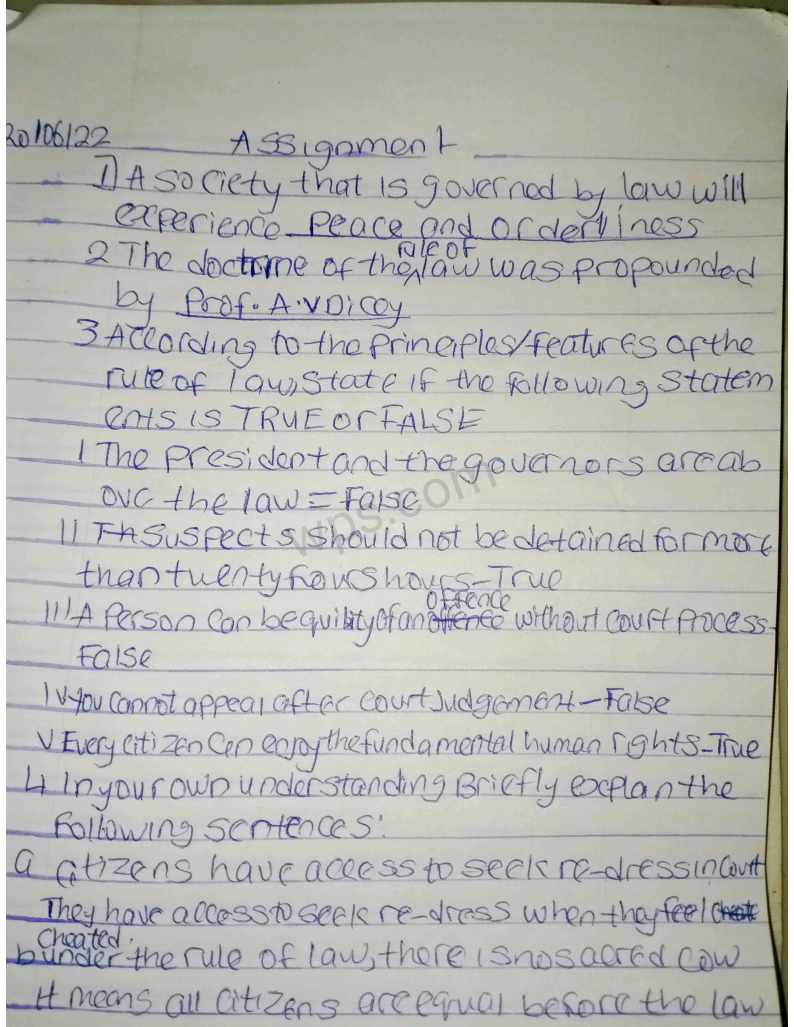 20/06/22 Assignment
1) A society that is governed by law will
experience Peace and orderliness
2 The doctrine of the rule of law was propounded
by Prof. A.V Dicey
3 According to the principles/features of the
rule of law, state if the following statem
ents is TRUE or FALSE
I The president and the governors are ab
ove the law = False
II Suspects should not be detained for more
than twenty fours hours - True
III A Person can be quilty of an offence without court process -
False
IV you cannot appeal after court Judgement - False
V Every citizen can enjoy the fundamental human rights - True
4 In your own understanding Briefly explan the
Following sentences:
a citizens have access to seek re-dress in court
They have access to seek re-dress when they feel
cheated.
b under the rule of law, there is no sacred cow
It means all citizens are equal before the law
wps.com